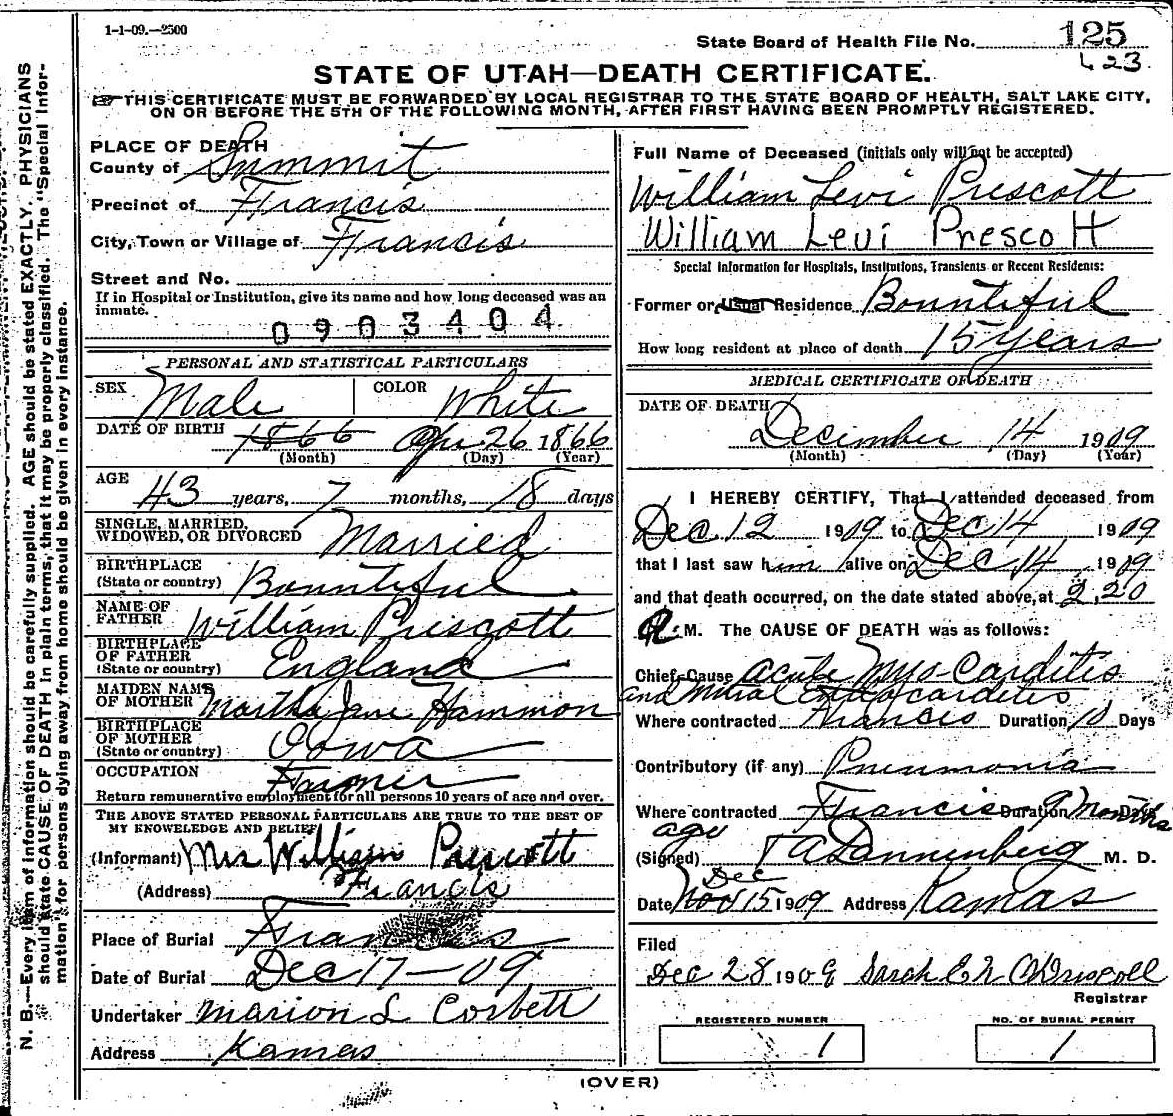 1-1-09.—2500
State Board of Health File No. 125
423
STATE OF UTAH—DEATH CERTIFICATE.
THIS CERTIFICATE MUST BE FORWARDED BY LOCAL REGISTRAR TO THE STATE BOARD OF HEALTH, SALT LAKE CITY,
ON OR BEFORE THE 5TH OF THE FOLLOWING MONTH, AFTER FIRST HAVING BEEN PROMPTLY REGISTERED.
N. B.—Every item of information should be carefully supplied. AGE should be stated EXACTLY. PHYSICIANS
should state CAUSE OF DEATH in plain terms, that it may be properly classified. The "Special Infor-
mation" for persons dying away from home should be given in every instance.
PLACE OF DEATH
County of Summit
Precinct of Francis
City, Town or Village of Francis
Street and No.
If in Hospital or Institution, give its name and how long deceased was an
inmate.
0903404
PERSONAL AND STATISTICAL PARTICULARS
SEX Male COLOR White
DATE OF BIRTH 1866 Apr 26 1866
(Month) (Day) (Year)
AGE 43 years, 7 months, 18 days
SINGLE, MARRIED,
WIDOWED, OR DIVORCED Married
BIRTHPLACE
(State or country) Bountiful
NAME OF
FATHER William Prescott
BIRTHPLACE
OF FATHER
(State or country) England
MAIDEN NAME
OF MOTHER Martha Jane Hammon
BIRTHPLACE
OF MOTHER
(State or country) Iowa
OCCUPATION Farmer
Return remunerative employment for all persons 10 years of age and over.
THE ABOVE STATED PERSONAL PARTICULARS ARE TRUE TO THE BEST OF
MY KNOWLEDGE AND BELIEF
(Informant) Mrs William Prescott
(Address) Francis
Place of Burial Francis
Date of Burial Dec 17—09
Undertaker Marion L Corbett
Address Kamas
Full Name of Deceased (initials only will not be accepted)
William Levi Prescott
William Levi Prescott
Special Information for Hospitals, Institutions, Transients or Recent Residents:
Former or Usual Residence Bountiful
How long resident at place of death 15 years
MEDICAL CERTIFICATE OF DEATH
DATE OF DEATH
December 14 1909
(Month) (Day) (Year)
I HEREBY CERTIFY, That I attended deceased from
Dec 12 1909 to Dec 14 1909
that I last saw him alive on Dec 14 1909
and that death occurred, on the date stated above, at 2,20
M. The CAUSE OF DEATH was as follows:
Chief Cause acute Myo-Carditis
and Mitral Endocarditis
Where contracted Francis Duration 10 Days
Contributory (if any) Pneumonia
Where contracted Francis Duration 9 Months Days
ago
(Signed) T A Dannenberg M. D.
Dec
Date Nov 15 1909 Address Kamas
Filed
Dec 28 1909 Sarah E N O'Driscoll
Registrar
REGISTERED NUMBER
1
NO. OF BURIAL PERMIT
1
(OVER)